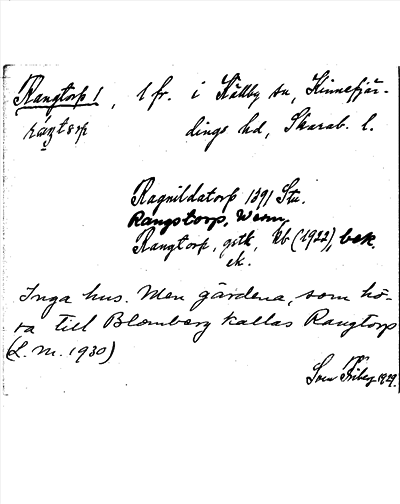 Rangtorp 1, 1 fr. i Källby sn, Kinnefjär-
dings hd, Skarab. l.
Ragnildatorp 1391 Stu.
Rangstorp, Werm.
Rangtorp, gstk, kb (1922), bek.
ek.
Inga hus. Men gärdena, som hö-
ra till Blomberg kallas Rangtorp
(L. M. 1930)
Sven Friberg 1929.